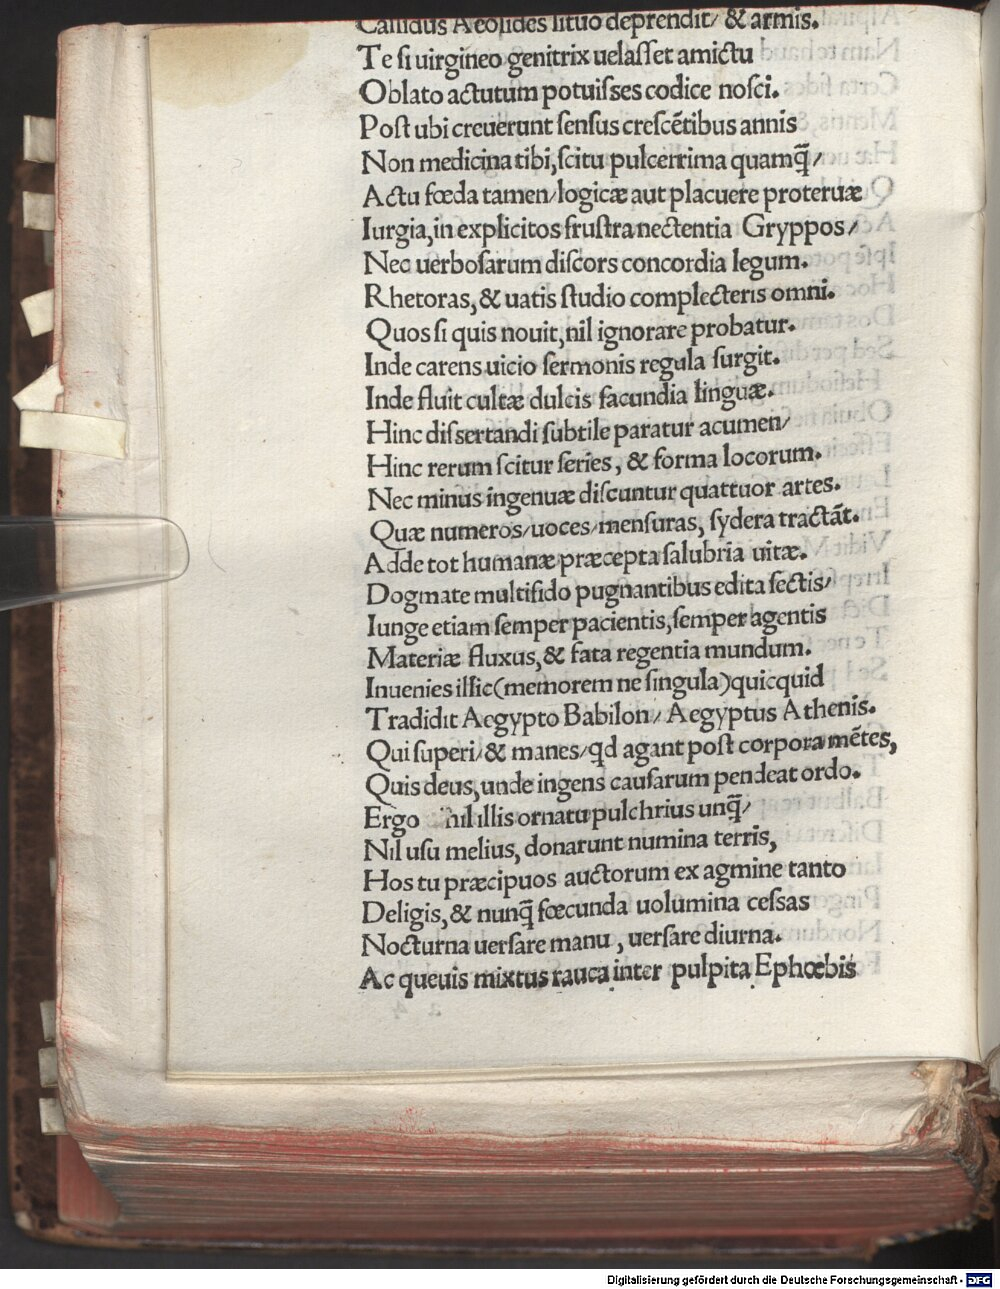 Callidus Aeolides lituo deprendit/ & armis.
Te si uirgineo genitrix uelasset amictu
Oblato actutum potuisses codice nosci.
Post ubi creuerunt sensus crescētibus annis
Non medicina tibi, scitu pulcerrima quamq̄/
Actu fœda tamen/logicæ aut placuere proteruæ
Iurgia, in explicitos frustra nectentia Gryppos/
Nec uerbosarum discors concordia legum.
Rhetoras, & uatis studio complecteris omni.
Quos si quis nouit, nil ignorare probatur.
Inde carens uicio sermonis regula surgit.
Inde fluit cultæ dulcis facundia linguæ.
Hinc dissertandi subtile paratur acumen/
Hinc rerum scitur series, & forma locorum.
Nec minus ingenuæ discuntur quattuor artes.
Quæ numeros/uoces/mensuras, sydera tractāt.
Adde tot humanæ præcepta salubria uitæ.
Dogmate multifido pugnantibus edita sectis/
Iunge etiam semper pacientis, semper agentis
Materiæ fluxus, & fata regentia mundum.
Inuenies illic (memorem ne singula) quicquid
Tradidit Aegypto Babilon/ Aegyptus Athenis.
Qui superi/& manes/qd agant post corpora mētes,
Quis deus, unde ingens causarum pendeat ordo.
Ergo nil illis ornatu pulchrius unq̄/
Nil usu melius, donarunt numina terris,
Hos tu præcipuos auctorum ex agmine tanto
Deligis, & nunq̄ fœcunda uolumina cessas
Nocturna uersare manu, uersare diurna.
Ac queuis mixtus rauca inter pulpita Ephœbis
Digitalisierung gefördert durch die Deutsche Forschungsgemeinschaft - DFG